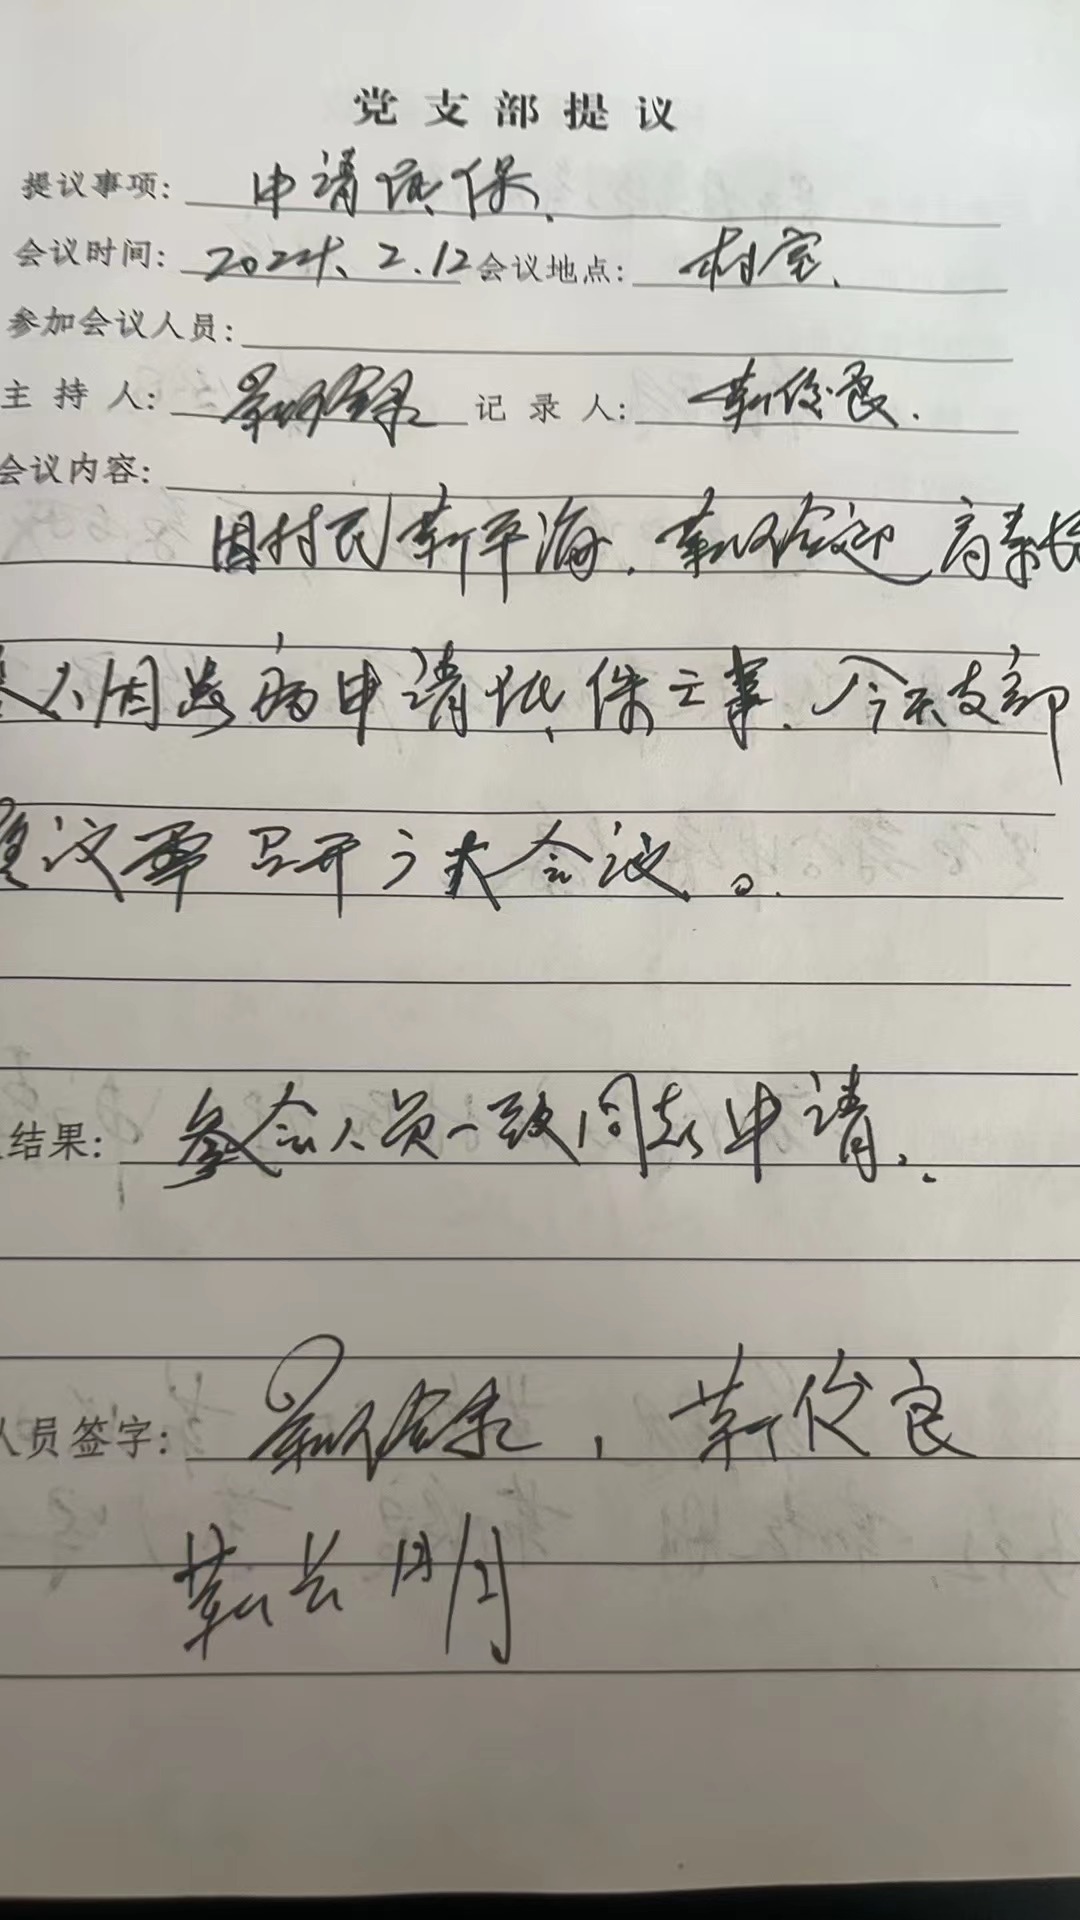 党支部提议
提议事项: 申请低保.
会议时间: 2024、2.12 会议地点: 村室.
参加会议人员:
主持人: 记录人: 靳俊良.
会议内容:
因村民靳平海. 靳
人因患病申请低保之事. 今天支部
议要召开扩大会议。
结果: 参会人员一致同意申请.
人员签字: , 靳俊良
靳长明